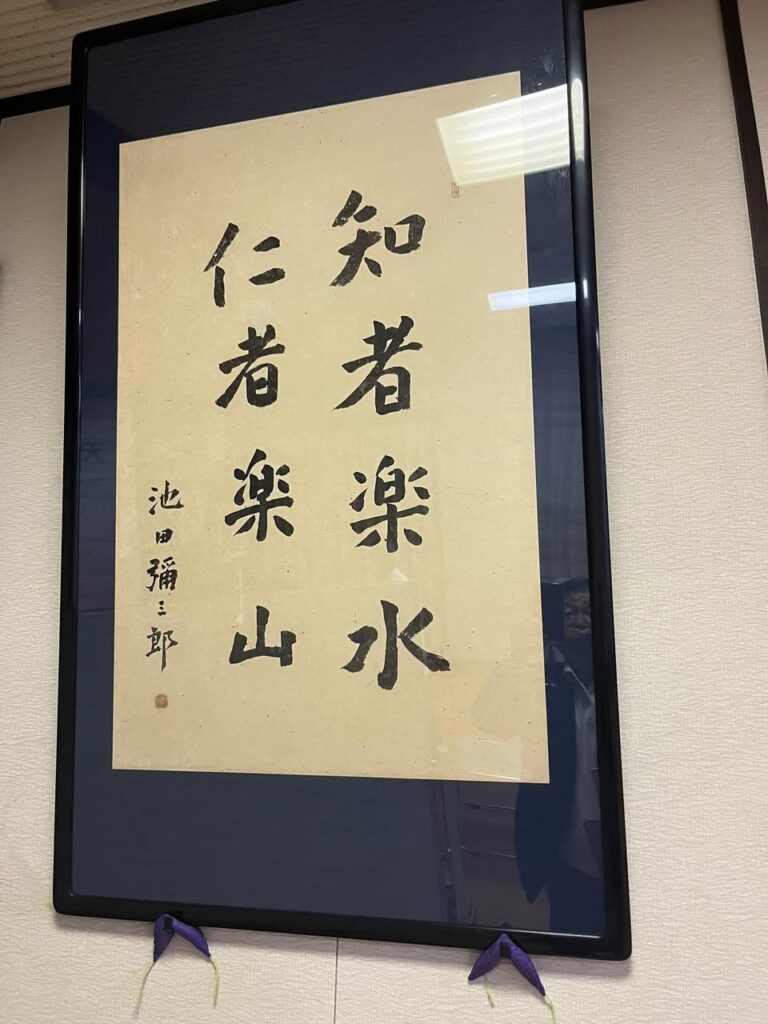 知者楽水
仁者楽山
池田彌三郎